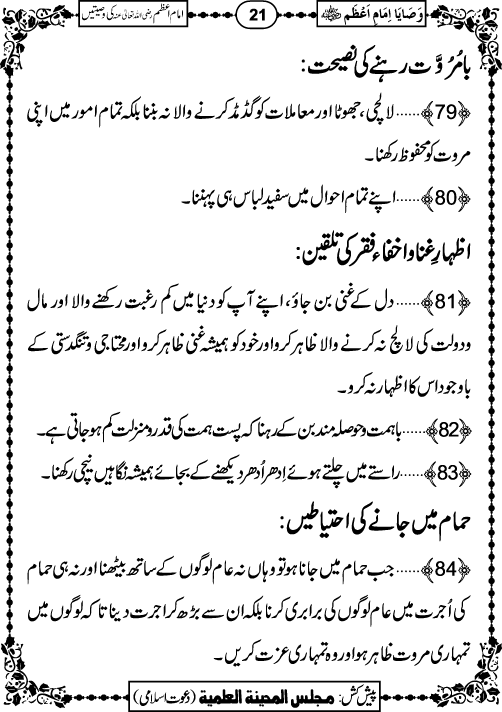 وَصَایَا اِمَامِ اَعْظَم
21
امام اعظم رضی اللہ تعالیٰ عنہ کی وصیتیں
بامُرُوَّت رہنے کی نصیحت:
﴿79﴾......لالچی، جھوٹا اور معاملات کو گڈمڈ کرنے والا نہ بننا بلکہ تمام امور میں اپنی
مروت کو محفوظ رکھنا۔
﴿80﴾......اپنے تمام احوال میں سفید لباس ہی پہننا۔
اظہارِ غنا و اخفاءِ فقر کی تلقین:
﴿81﴾......دل کے غنی بن جاؤ، اپنے آپ کو دنیا میں کم رغبت رکھنے والا اور مال
ودولت کی لالچ نہ کرنے والا ظاہر کرو اور خود کو ہمیشہ غنی ظاہر کرو اور محتاجی وتنگدستی کے
باوجود اس کا اظہار نہ کرو۔
﴿82﴾......باہمت وحوصلہ مند بن کے رہنا کہ پست ہمت کی قدر ومنزلت کم ہوجاتی ہے۔
﴿83﴾......راستے میں چلتے ہوئے اِدھر اُدھر دیکھنے کے بجائے ہمیشہ نگاہیں نیچی رکھنا۔
حمام میں جانے کی احتیاطیں:
﴿84﴾......جب حمام میں جانا ہوتو وہاں نہ عام لوگوں کے ساتھ بیٹھنا اور نہ ہی حمام
کی اُجرت میں عام لوگوں کی برابری کرنا بلکہ ان سے بڑھ کر اجرت دینا تا کہ لوگوں میں
تمہاری مروت ظاہر ہو اور وہ تمہاری عزت کریں۔
پیش کش: مجلس المدینۃ العلمیۃ (دعوت اسلامی)